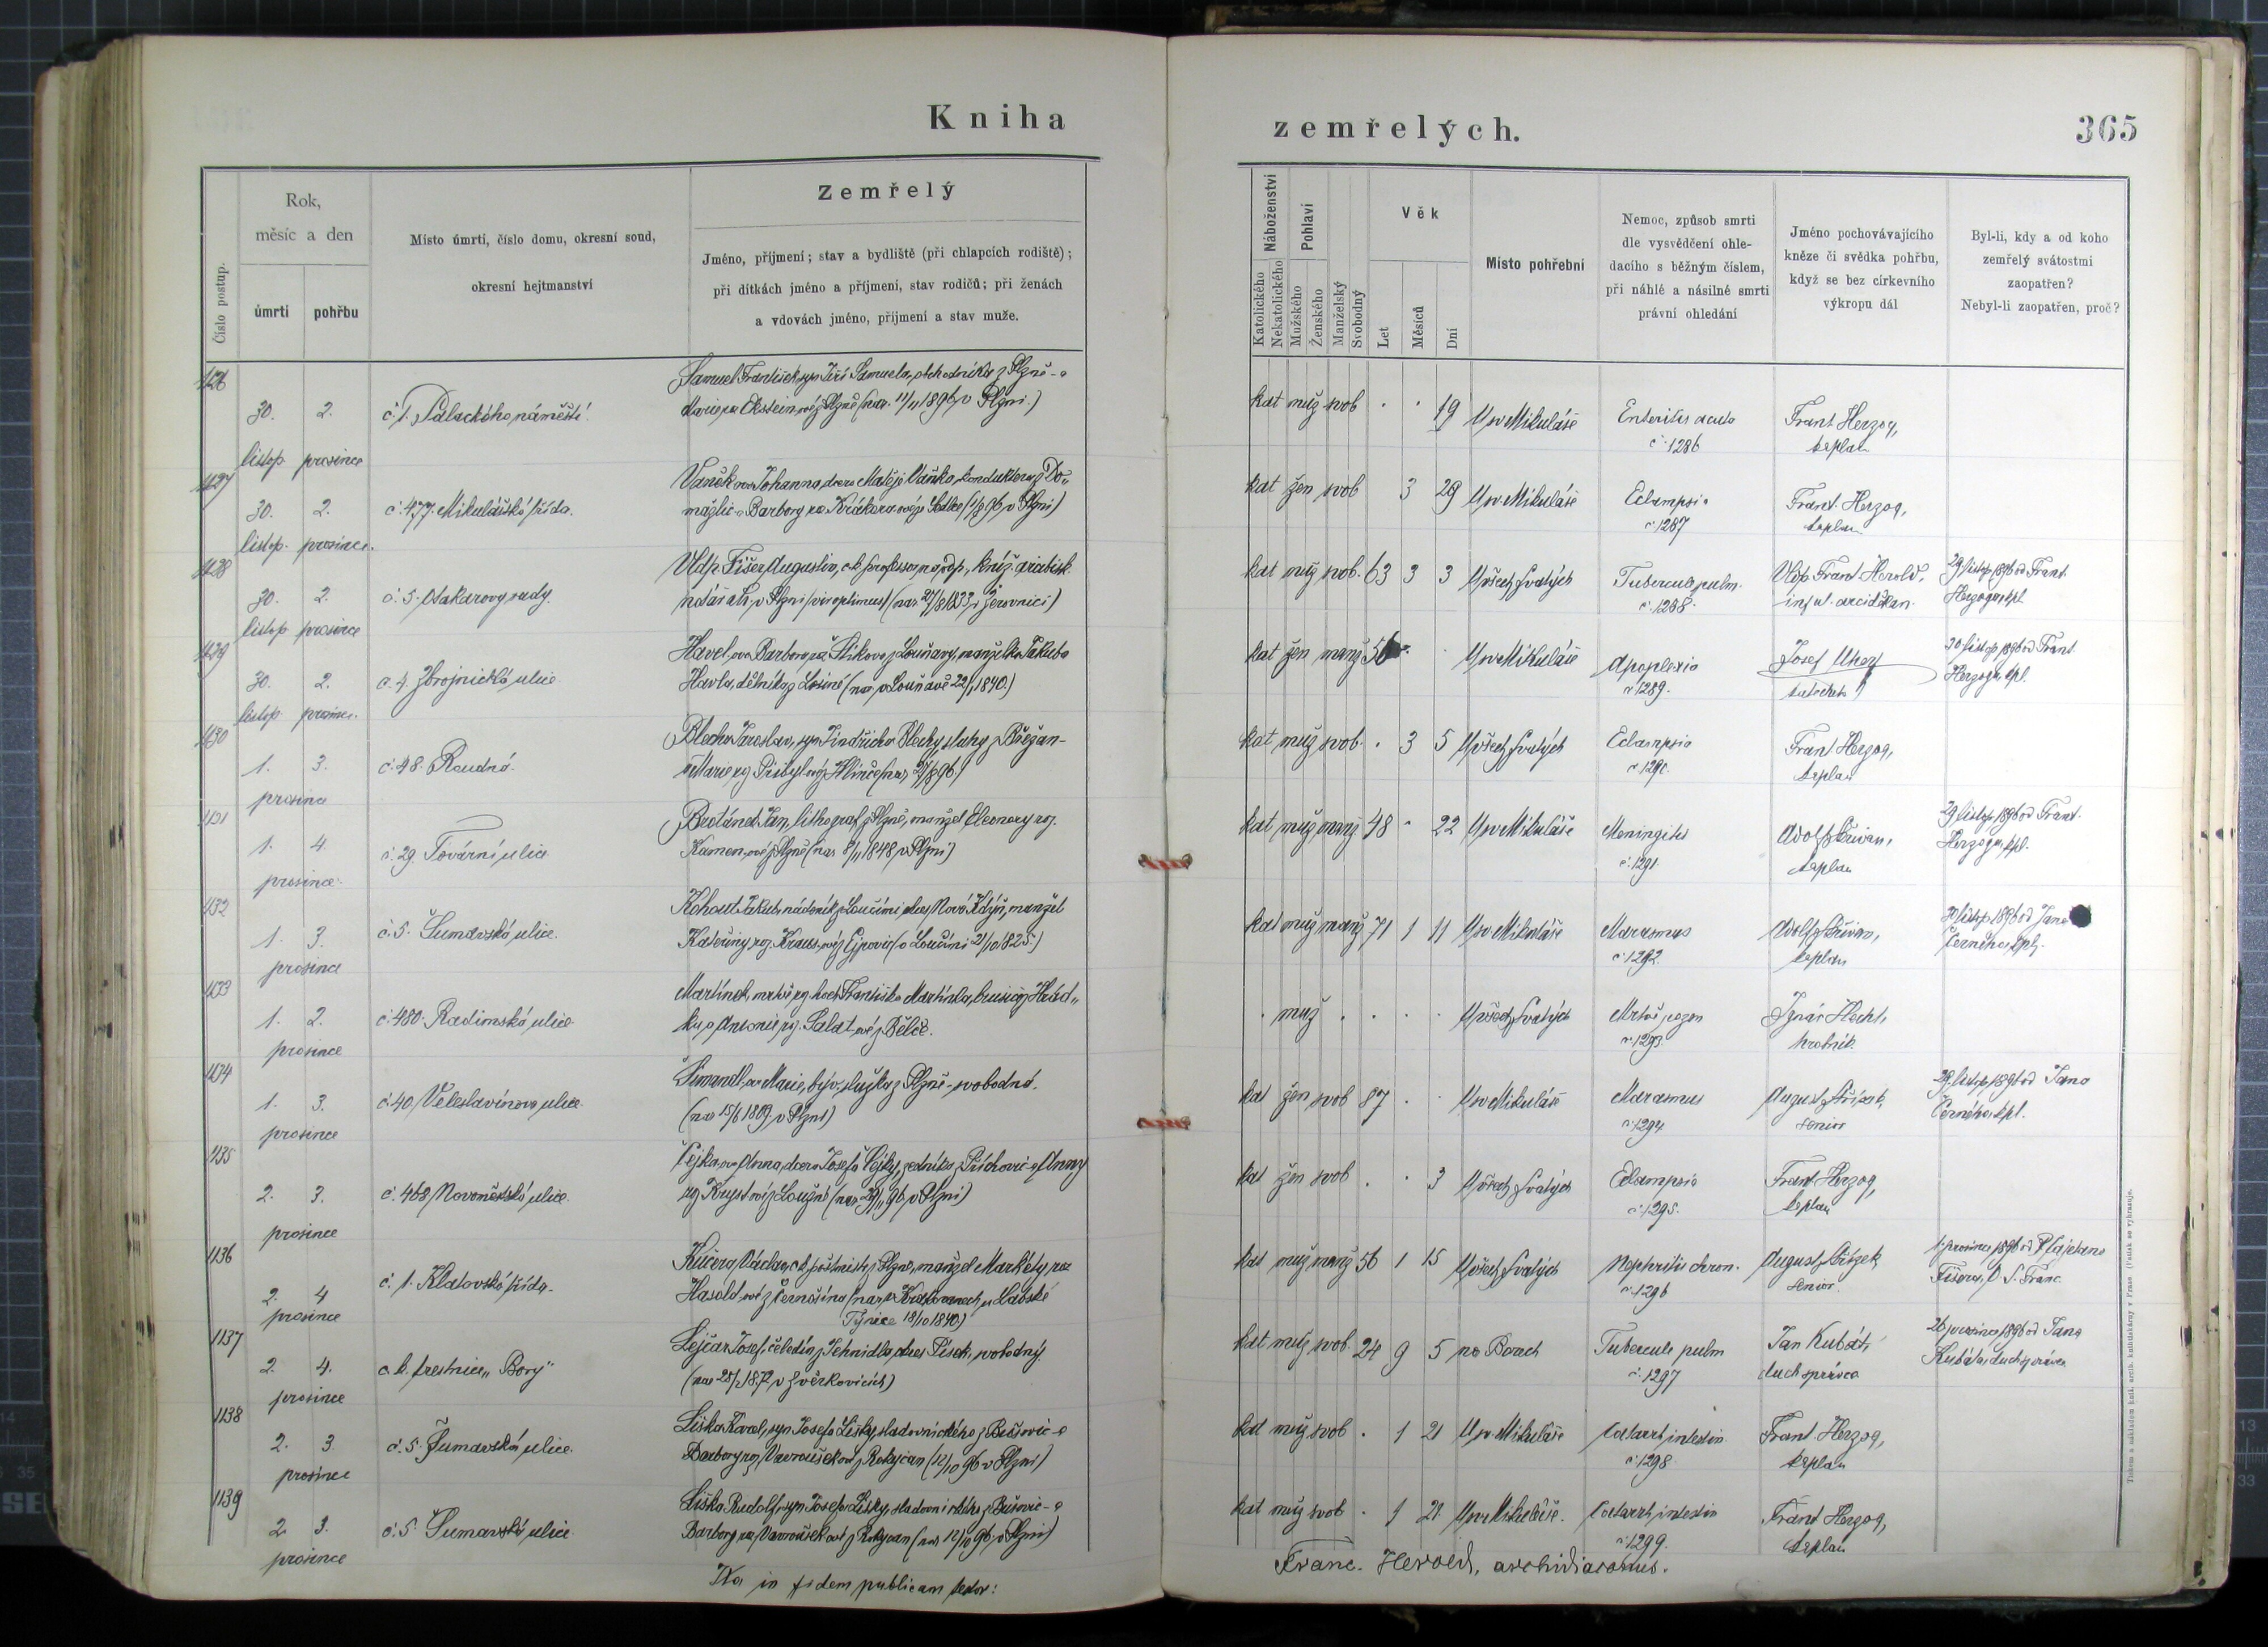 Kniha
zemřelých.
365
Číslo postup.
Rok,
měsíc a den
úmrtí
pohřbu
Místo úmrtí, číslo domu, okresní soud,
okresní hejtmanství
Zemřelý
Jméno, příjmení; stav a bydliště (při chlapcích rodiště);
při dítkách jméno a příjmení, stav rodičů; při ženách
a vdovách jméno, příjmení a stav muže.
Náboženství
Katolického
Nekatolického
Pohlaví
Mužského
Ženského
Manželský
Svobodný
Věk
Let
Měsíců
Dní
Místo pohřební
Nemoc, způsob smrti
dle vysvědčení ohle-
dacího s běžným číslem,
při náhlé a násilné smrti
právní ohledání
Jméno pochovávajícího
kněze či svědka pohřbu,
když se bez církevního
výkropu dál
Byl-li, kdy a od koho
zemřelý svátostmi
zaopatřen?
Nebyl-li zaopatřen, proč?
1126
30. 2.
listop. prosince
č. 1. Palackého náměstí.
Samuel František, syn Jiří Samuela, obchodníka z Plzně - a
Marie roz. Eksteinové z Plzně (nar. 11/11 1896 v Plzni)
kat muž svob . . 19 U sv Mikuláše
Enteritis acuta
č. 1286
Frant Herzog,
kaplan
1127
30. 2.
listop. prosince.
č. 477. Mikulášská třída.
Vaněk ova Johanna, dcera Matěje Vaňka, konduktera z Do„
mažlic a Barbory roz.
kat žen svob 3 29 U sv. Mikuláše
Eclampsie
č. 1287
Frant. Herzog,
kaplan
1128
30. 2.
listop prosince
č. 5. Sady
Vldp. Fišer Augustin, c.k. professor na odp., kníž. arcibisk.
notář atd. v Plzni (nar. 27/8 1833 v Žerovnici)
kat muž svob. 63 3 3 U všech Svatých
Tubercul. pulm.
č. 1288.
Vldp Frant Herold,
inful. arciděkan.
29 listop 1896 od Frant.
Herzoga, kpl.
1129
30. 2.
listop. prosince.
č. 4. Zbrojnická ulice
Havel, ova Barbora, manželka Jakuba
Havla, dělníka z Losiné (nar. v Louňavě 22/1 1840.)
kat žen manž 56 U sv Mikuláše
Apoplexia
č. 1289.
Josef
30 listop 1896 od Frant.
Herzoga, kpl.
1130
1. 3.
prosince
č. 48. Roudná.
Blecha Jaroslav, syn Jindřicha Blechy, sluhy z Břežan -
a Marie roz. Přibylové z Hlince (nar. 27/8 96.)
kat muž svob. . 3 5 U všech Svatých
Eclampsie
č. 1290.
Frant Herzog,
kaplan
1131
1. 4.
prosince.
č. 29. Tovární ulice
Brotánek Jan, lithograf z Plzně, manžel Eleonory roz.
z Plzně (nar. 8/11 1848 v Plzni)
kat muž manž 48 . 22 U sv Mikuláše
Meningitis
č. 1291.
Adolf Skřivan,
kaplan
29 listop. 1896 od Frant.
Herzoga, kpl.
1132
1. 3.
prosince
č. 5. Šumavská ulice.
Kohout Jakub, nádeník z Loučimi okres Nová Kdyň, manžel
Kateřiny roz. Krausové z Ejpovic (v Loučimi 21/10 1825.)
kat muž manž 71 1 11 U sv Mikuláše
Marasmus
č. 1292.
Adolf Skřivan,
kaplan
30 listop 1896 od Jana
Černého, kpl.
1133
1. 2.
prosince
č. 480. Radimská ulice.
Martínek, mrtvě roz. hoch Františka Martínka, brusiče z Hrád„
ku, a Antonie roz. Salatové z Bělče.
. muž . . . . U všech Svatých
Mrtvě rozen
č. 1293.
Ignác Hecht,
hrobník.
1134
1. 3.
prosince
č. 40. Veleslavínova ulice.
Šimandl ova Marie, býv. služka z Plzně - svobodná.
(nar 15/6 1809 v Plzni)
kat žen svob 87 . . U sv Mikuláše
Marasmus
č. 1294
August
senior
29. listop. 1896 od Jana
Černého, kpl.
1135
2. 3.
prosince
č. 468 ulice.
Čejka, ova Anna, dcera Josefa Čejky, zedníka z Příchovic a Anny
(nar 29/11 96 v Plzni)
kat žen svob . . 3 U všech Svatých
Eclampsie
č. 1295.
Frant Herzog,
kaplan
1136
2. 4
prosince
č. 1. Klatovská třída.
Kučera Václav, c.k. poštmistr z Plzně, manžel Markéty roz.
Hasold ové z Černošína (nar. v
Týnice 18/10 1840)
kat muž manž 56 1 15 U všech Svatých
Nephritis chron.
č. 1296
August
senior.
1. prosince 1896 od P. Cajetana
Fišera, O. S. Franc.
1137
2. 4.
prosince
c. k. trestnice „Bory"
Lejčar Josef, čeledín z Tehnidla, okres Písek, svobodný.
(nar 25/2 1872 v Zvěrkovicích)
kat muž svob. 24 9 5 na Borech
Tubercule pulm
č. 1297
Jan Kubát,
duch. správce
Kubáta, duch. správce
1138
2. 3.
prosince
č. 5. Šumavská ulice.
Liška Karel, syn Josefa Lišky, sladovnického z Bušovic - a
Barbory roz. Vavroušek ové z Rokycan (12/10 96 v Plzni)
kat muž svob . 1 21 U sv Mikuláše
Catarrh, intestin.
č. 1298
Frant Herzog,
kaplan
1139
2. 3.
prosince
č. 5. Šumavská ulice.
Liška Rudolf, syn Josefa Lišky, sladovnického z Bušovic - a
Barbory roz. Vavroušek ové z Rokycan (nar. 12/10 96. v Plzni)
kat muž svob . 1 21. U sv. Mikuláše.
Catarrh, intestin
č. 1299.
Frant Herzog,
kaplan
Ita in fidem publicam testor:
Franc. Herold, archidiaconus.